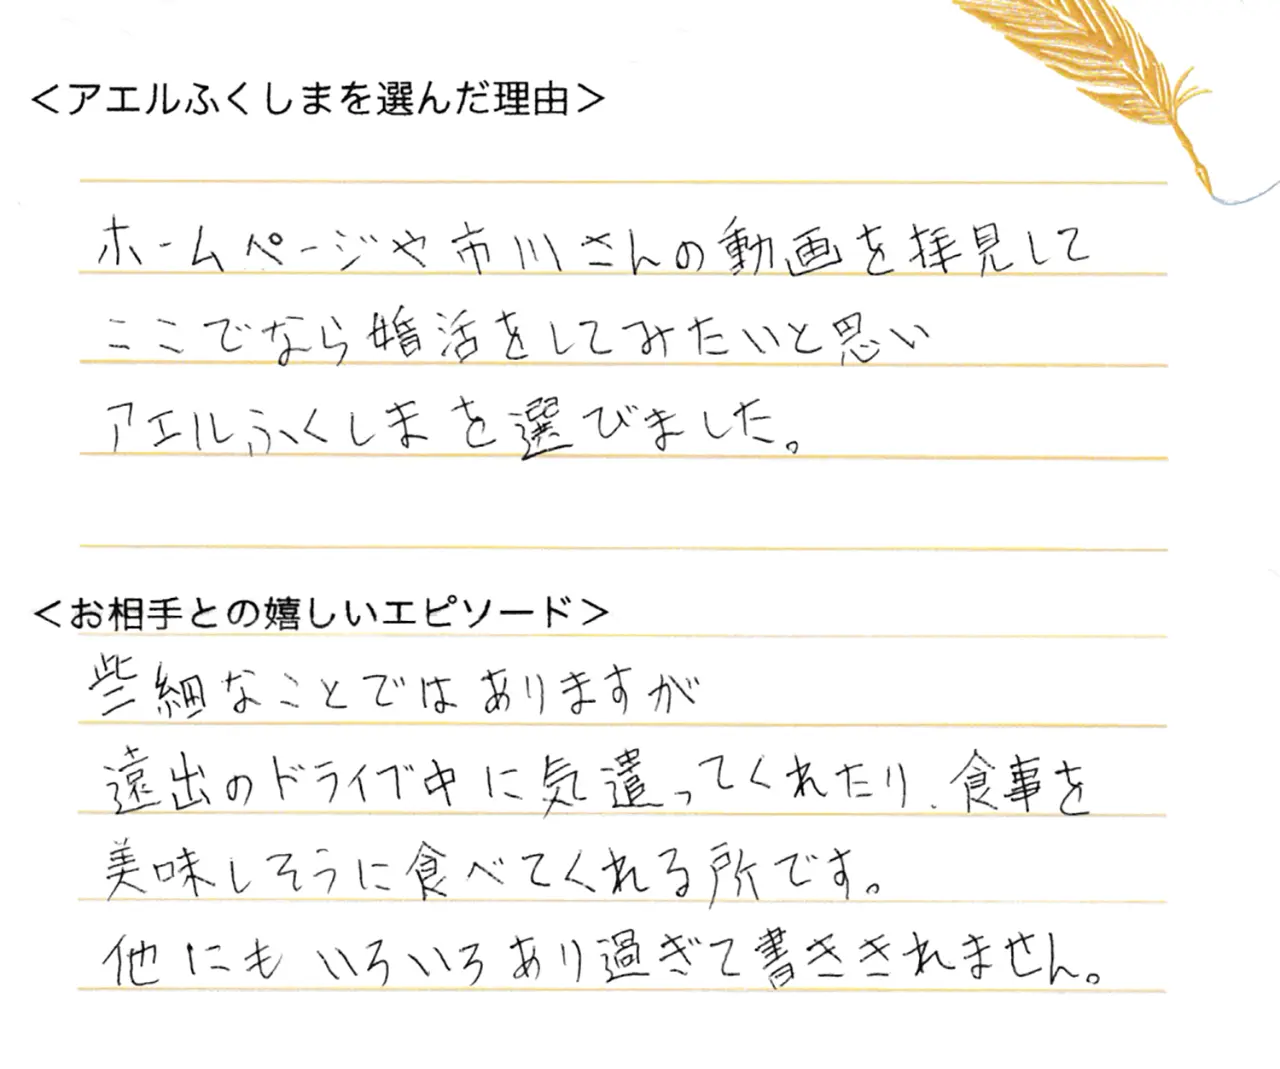 ＜アエルふくしまを選んだ理由＞
ホームページや市川さんの動画を拝見して
ここでなら婚活をしてみたいと思い
アエルふくしまを選びました。
＜お相手との嬉しいエピソード＞
些細なことではありますが
遠出のドライブ中に気遣ってくれたり、食事を
美味しそうに食べてくれる所です。
他にもいろいろあり過ぎて書ききれません。